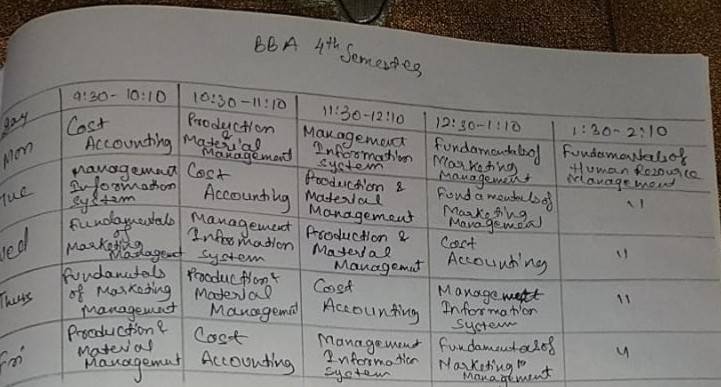 BBA 4th Semester
Day 9:30-10:10 10:30-11:10 11:30-12:10 12:30-1:10 1:30-2:10
Mon Cost Accounting Production & Material Management Management Information System Fundamentals of Marketing Management Fundamentals of Human Resource Management
Tue Management Information System Cost Accounting Production & Material Management Fundamentals of Marketing Management "
Wed Fundamentals of Marketing Management Management Information System Production & Material Management Cost Accounting "
Thurs Fundamentals of Marketing Management Production & Material Management Cost Accounting Management Information System "
Fri Production & Material Management Cost Accounting Management Information System Fundamentals of Marketing Management "